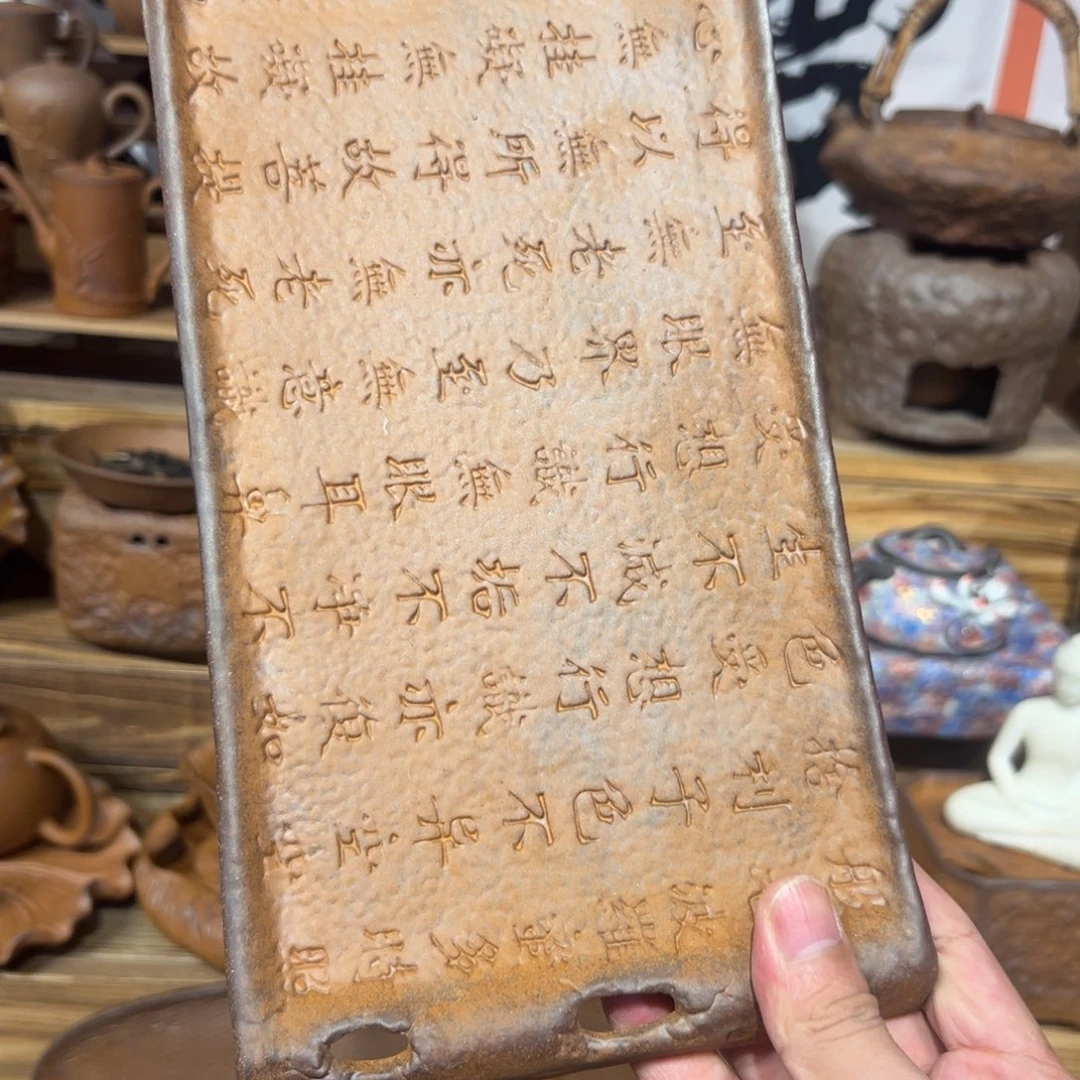 般波羅蜜多時照
捨利子色不異空空
色受想行識亦復如
生不滅不垢不淨不
受想行識無眼耳鼻
無眼界乃至無意識
至無老死亦無老死
得以無所得故菩提
心無挂礙無挂礙故